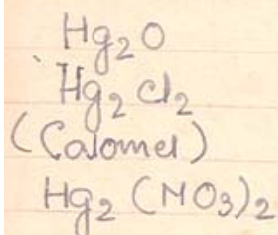 Hg₂O
Hg₂Cl₂
(Calomel)
Hg₂(NO₃)₂